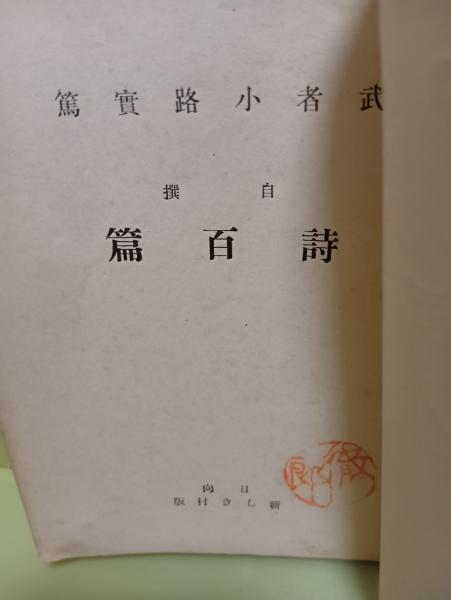 武者小路實篤
自撰
詩百篇
日向
新しき村版